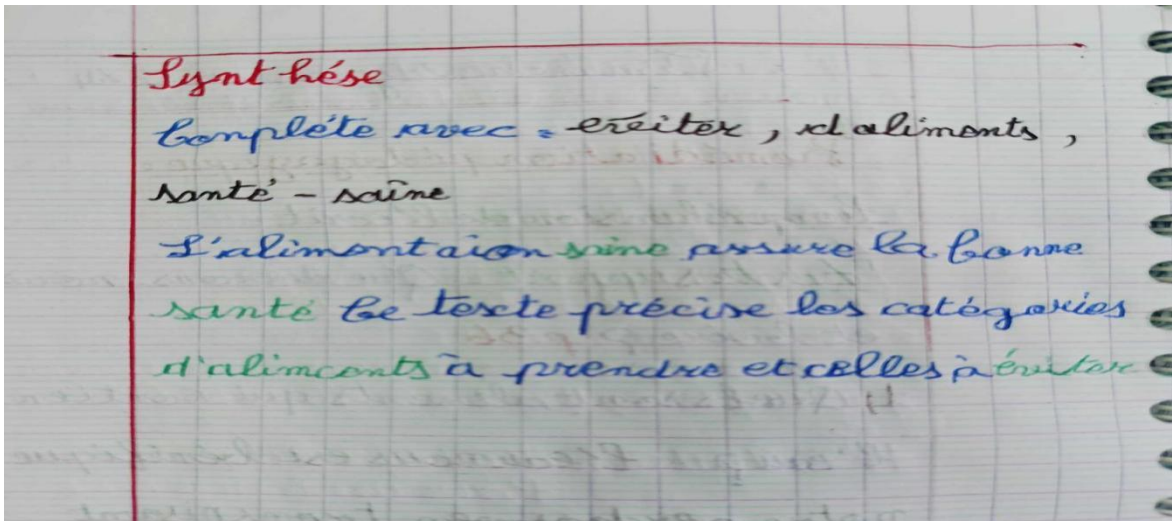 Synthése
Complété avec : eréiter, d aliments,
santé - saîne
L'alimentaion saine assure la bonne
santé Ce texte précise les catégories
d'alimconts à prendre et celles à éviter